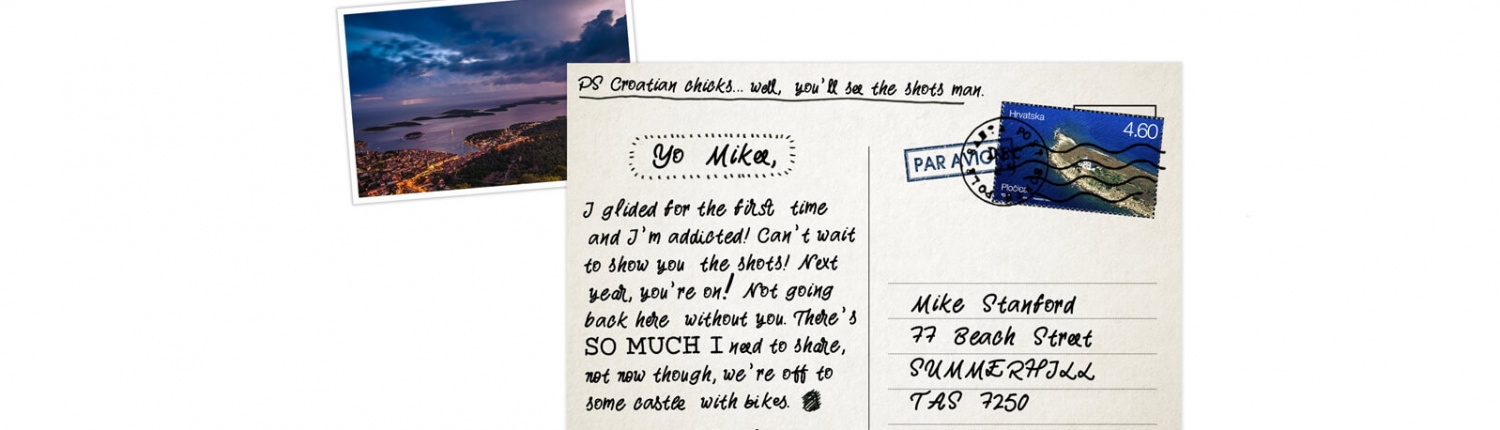 PS Croatian chicks... well, you'll see the shots man.
Yo Mikee,
I glided for the first time
and I'm addicted! Can't wait
to show you the shots! Next
year, you're on! Not going
back here without you. There's
SO MUCH I need to share,
not now though, we're off to
some castle with bikes.
PAR AVION
Hrvatska
4.60
Pločica
Mike Stanford
77 Beach Street
SUMMERHILL
TAS 7250